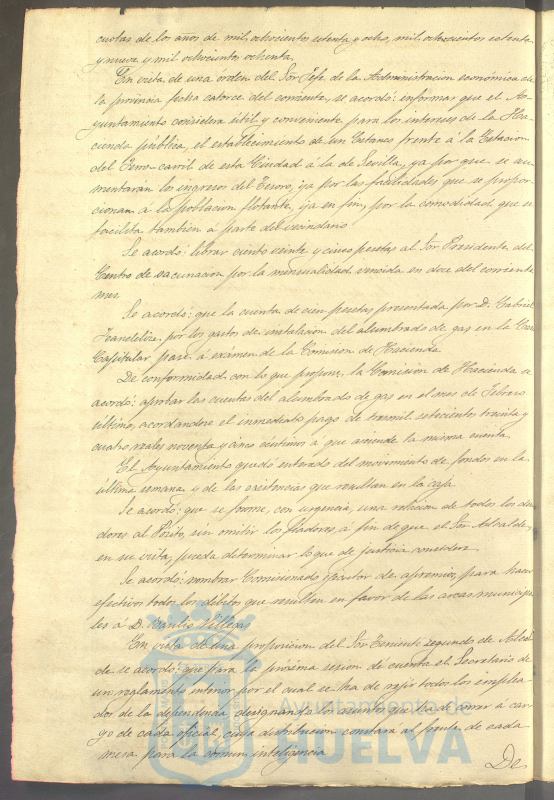 cuotas de los años de mil ochocientos setenta y ocho, mil ochocientos setenta
y nueve y mil ochocientos ochenta.
En vista de una orden del Sor Jefe de la Administracion económica de
la provincia fecha catorce del corriente, se acordó: informar que el A-
yuntamiento considera útil y conveniente para los intereses de la Ha-
cienda pública, el establecimiento de un Estanco frente á la Estacion
del Ferro-carril de esta Ciudad á la de Sevilla, ya por que se au-
mentarán los ingresos del Tesoro, ya por las facilidades que se propor-
cionan á la poblacion flotante, ya en fin, por la comodidad que se
facilita tambien á parte del vecindario.
Se acordó: librar ciento veinte y cinco pesetas al Sor Presidente del
Centro de vacunacion por la mensualidad vencida en doce del corriente
mes.
Se acordó: que la cuenta de cien pesetas presentada por D. Gabriel
por los gastos de instalacion del alumbrado de gas en la Casa
Capitular pase á exámen de la Comision de Hacienda.
De conformidad con lo que propone, la Comision de Hacienda se
acordó: aprobar las cuentas del alumbrado de gas en el mes de Febrero
último, acordandose el inmediato pago de tresmil setecientos treinta y
cuatro reales noventa y cinco céntimos á que asciende la misma cuenta.
El Ayuntamiento quedó enterado del movimiento de fondos en la
última semana y de las existencias que resultan en la caja.
Se acordó: que se forme, con urgencia, una relacion de todos los deu-
dores al Pósito, sin omitir los fiadores, á fin de que el Sor Alcalde,
en su vista, pueda determinar lo que de justicia considere.
Se acordó: nombrar Comisionado ejecutor de apremios, para hacer
efectivos todos los débitos que resulten en favor de las arcas municipa-
les á D.
En vista de una proposicion del Sor Teniente segundo de Alcal-
de se acordó: que para la próxima sesion dé cuenta el Secretario de
un reglamento interior por el cual se ha de regir todos los emplea-
dos de la dependencia, designando los asuntos que ha de tener á car-
go de cada oficial, cuya distribucion constará al frente de cada
mesa para la comun inteligencia.
De
Ayuntamiento de
HUELVA